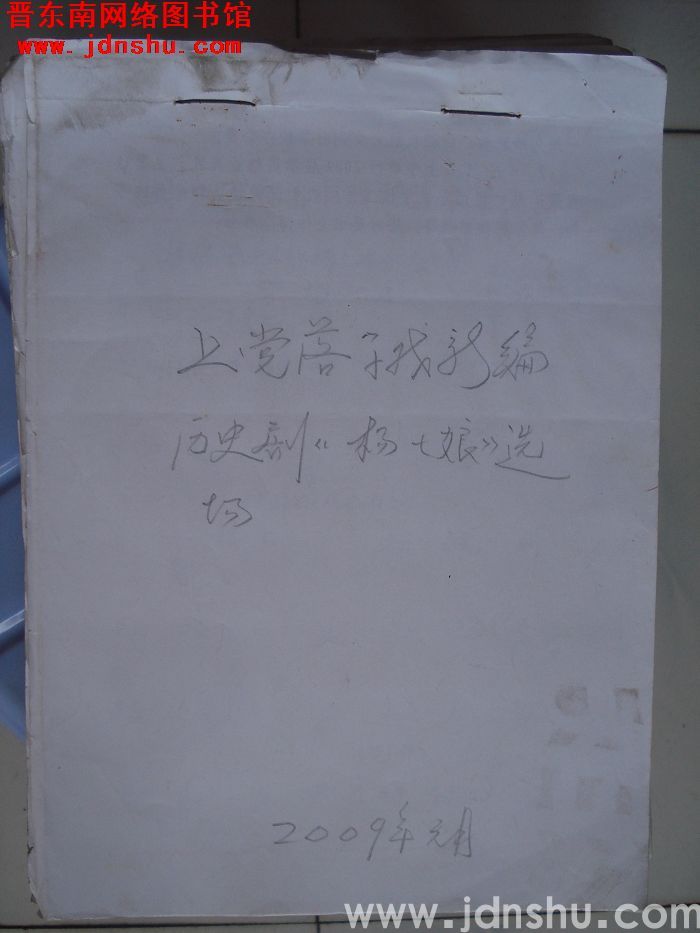 晋东南网络图书馆
www.jdnshu.com
上党落子戏新编
历史剧《杨七娘》选
场
2009年元月
www.jdnshu.com